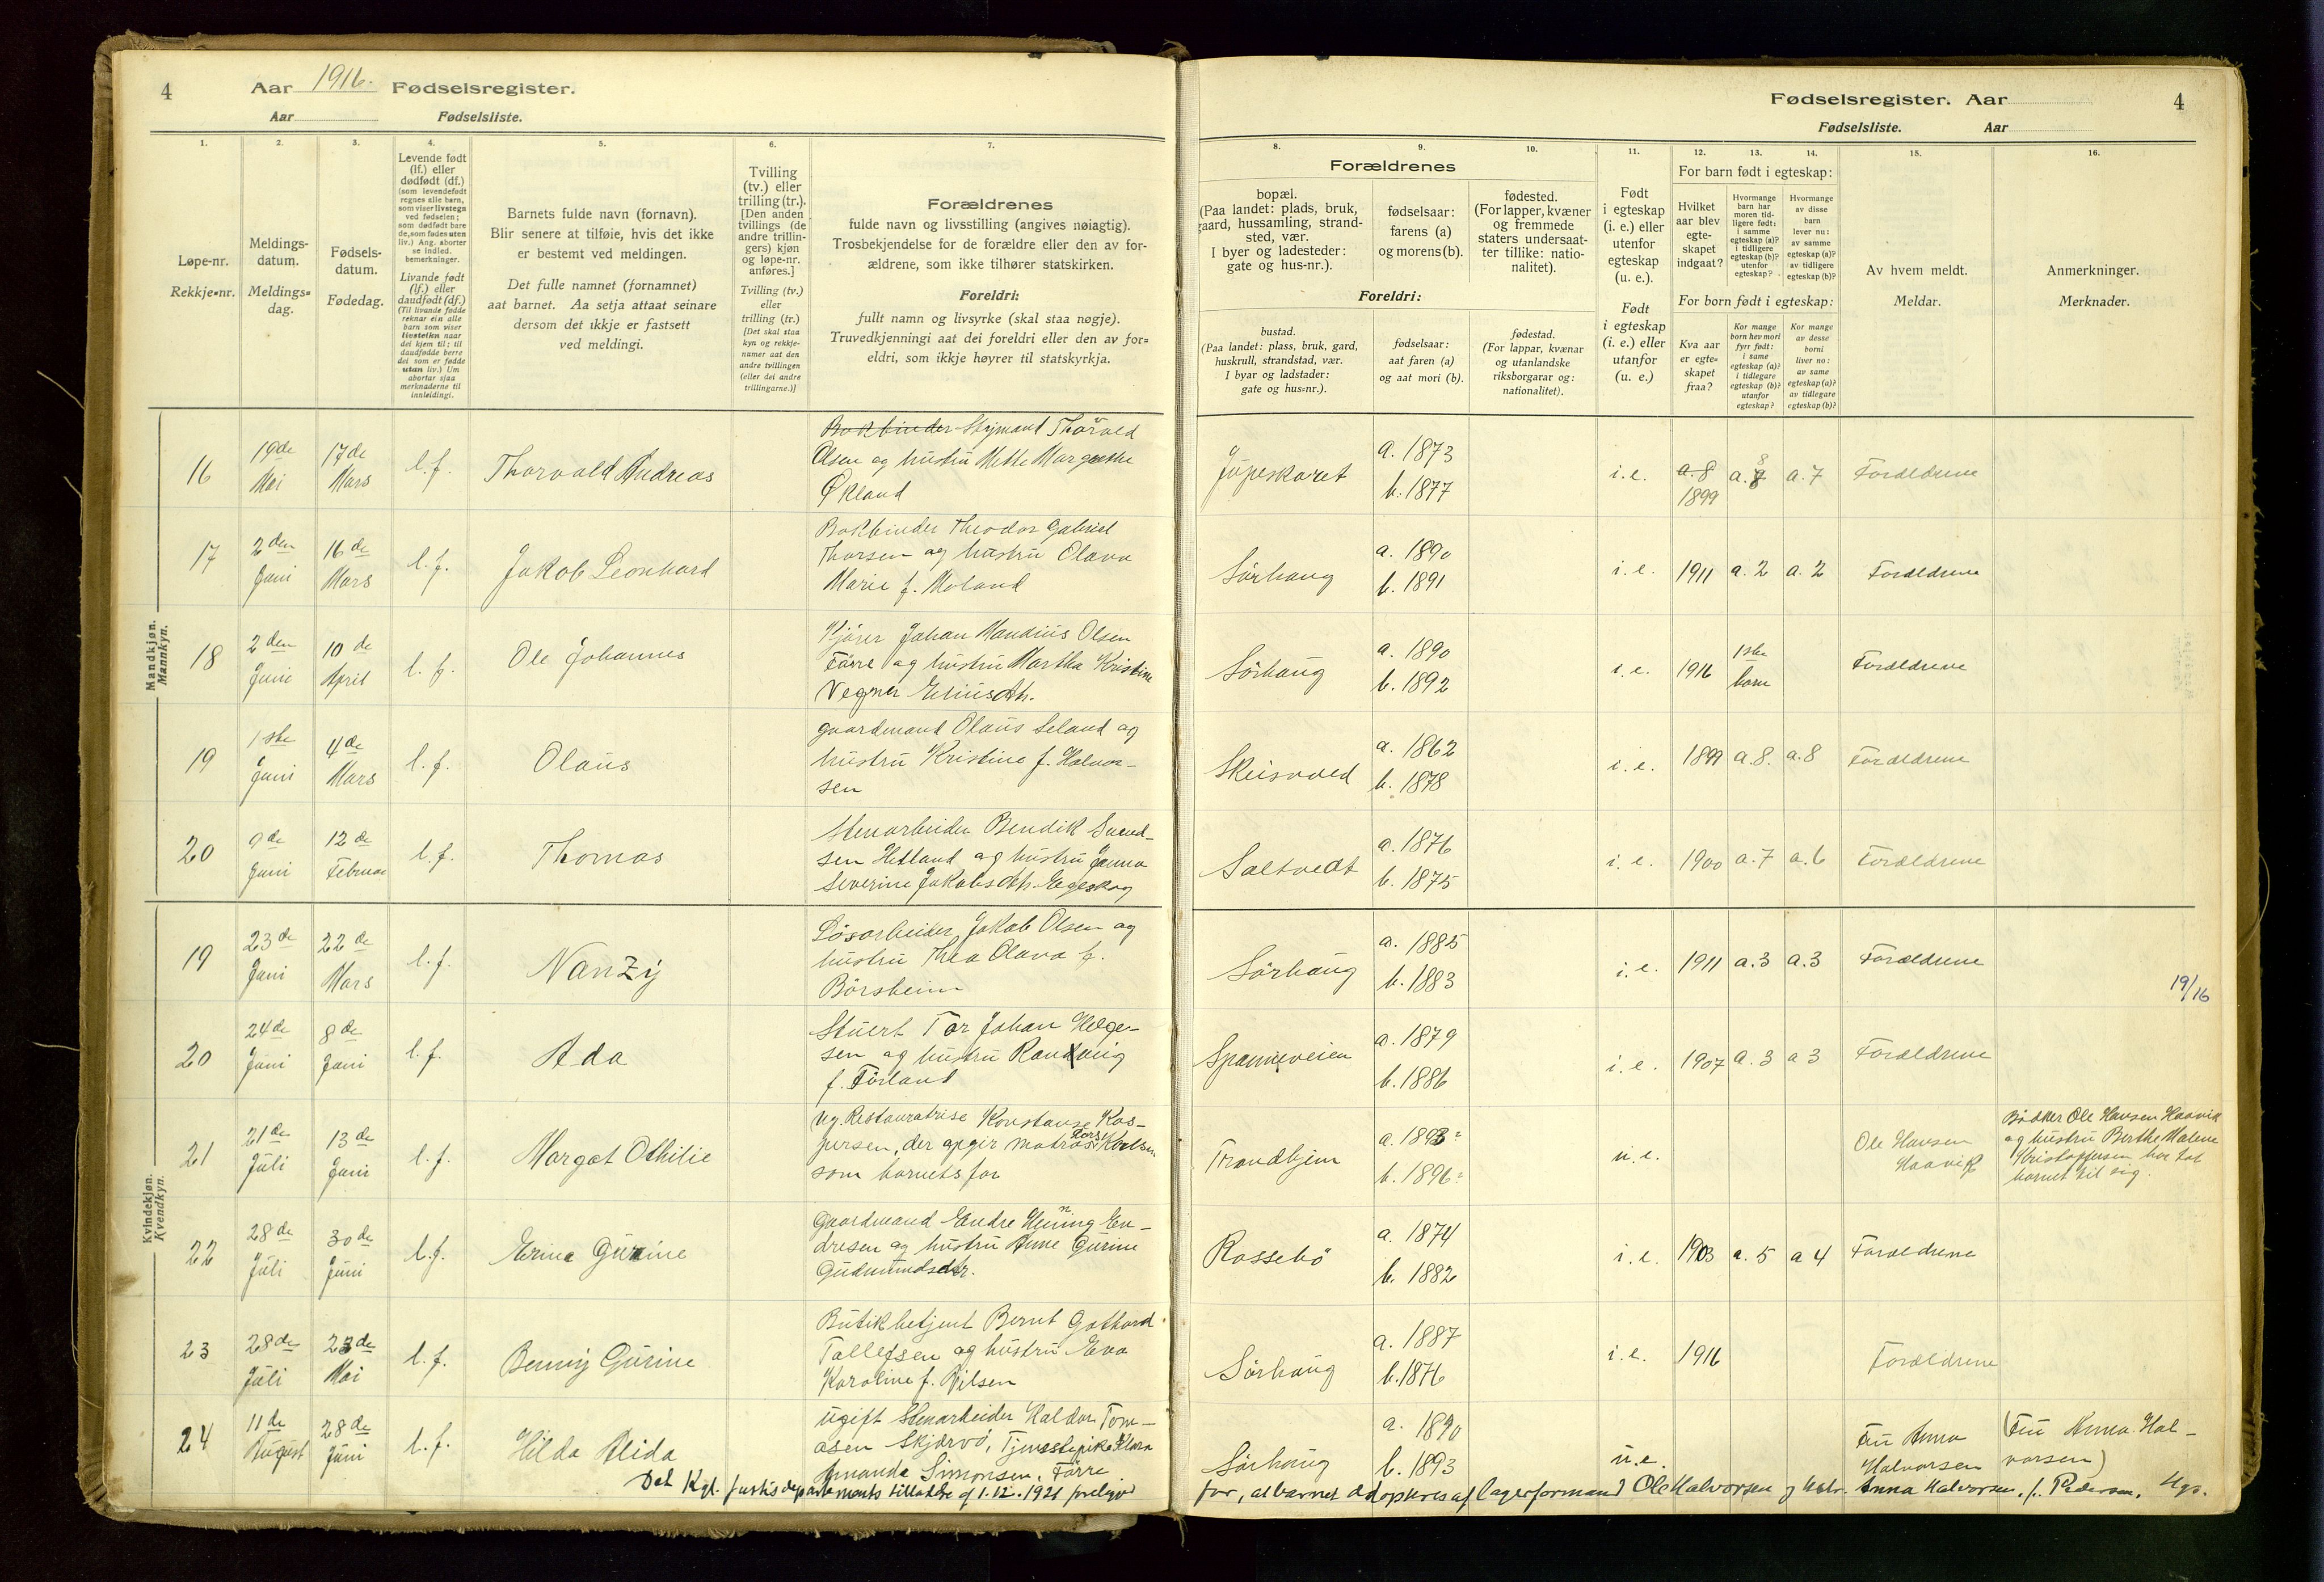 4 Aar 1916. Fødselsregister.
Aar Fødselsliste.
Fødselsregister. Aar 4
Fødselsliste. Aar
1. 2. 3. 4. 5. 6. 7.
Løpe-nr.
Rekkje=nr.
Meldings-
datum.
Meldings=
dag.
Fødsels-
datum.
Fødedag.
Levende født
(lf.) eller
dødfødt (df.)
(som levendefødt
regnes alle barn,
som viser livstegn
ved fødselen;
som dødfødt bare
de, som fødes uten
liv.) Ang. aborter
se indled.
bemerkninger.
Livande født
(lf.) eller
daudfødt (df.)
(Til livande fødde
reknar ein alle
barn som viser
livsteikn naar
dei kjem til; til
daudfødde berre
dei som er fødde
utan liv.) Um
abortar sjaa
merknaderne til
innleidingi.
Barnets fulde navn (fornavn).
Blir senere at tilføie, hvis det ikke
er bestemt ved meldingen.
Det fulle namnet (fornamnet)
aat barnet. Aa setja attaat seinare
dersom det ikkje er fastsett
ved meldingi.
Tvilling
(tv.) eller
trilling (tr.).
[Den anden
tvillings (de
andre trillin-
gers) kjøn
og løpe-nr.
anføres.]
Tvilling (tv.)
eller
trilling (tr.)
[Det skal staa
kyn og rekkje-
numer aat den
andre tvillingen
(eller dei andre
trillingarne.)]
Forældrenes
fulde navn og livsstilling (angives nøiagtig).
Trosbekjendelse for de forældre eller den av for-
ældrene, som ikke tilhører statskirken.
Foreldri:
fullt namn og livsyrke (skal staa nøgje).
Truvedkjenningi aat dei foreldri eller den av for=
eldri, som ikkje høyrer til statskyrkja.
8. 9. 10. 11. 12. 13. 14. 15. 16.
Forældrenes
bopæl.
(Paa landet: plads, bruk,
gaard, hussamling, strand-
sted, vær.
I byer og ladesteder:
gate og hus-nr.).
fødselsaar:
farens (a)
og morens (b).
fødested.
(For lapper, kvæner
og fremmede
staters undersaat-
ter tillike: natio-
nalitet).
Foreldri:
bustad.
(Paa landet: plass, bruk, gard,
huskrull, strandstad, vær.
I byar og ladstader:
gate og hus=nr.).
fødselsaar:
aat faren (a)
og aat mori (b).
fødestad.
(For lappar, kvænar
og utanlandske
riksborgarar og:
nationalitet).
Født
i egteskap
(i. e.) eller
utenfor
egteskap
(u. e.).
Født
i egteskap
(i. e.) eller
utanfor
(u. e.)
For barn født i egteskap:
Hvilket
aar blev
egte-
skapet
indgaat?
Hvormange
barn har
moren tid-
ligere født:
i samme
egteskap (a)?
i tidligere
egteskap (b)?
utenfor
egteskap?
Hvormange
av disse
barn
lever nu:
av samme
egteskap (a)?
av tidligere
egteskap (b)?
For born født i egteskap:
Kva aar
er egte=
skapet
fraa?
Kor mange
born hev mori
fyrr født:
i same
egteskap (a)?
i tidlegare
egteskap (b)?
utanfor
egteskap?
Kor mange
av desse
borni
liver no:
av same
egteskap (a)?
av tidlegare
egteskap (b)?
Av hvem meldt.
Meldar.
Anmerkninger.
Merknader.
Mandkjøn.
Mannkyn.
16 19de Mai 17de Mars l.f. Thorvald Andreas
Bokbinder Styrmand Thorvald
Olsen og hustru Mette Margrethe
Økland
a. 1873
b. 1877
i.e. a. 8 1899 a. 8 a. 7 Forældrene
17 2den Juni 16de Mars l.f. Jakob Leonhard
Bokbinder Theodor Gabriel
Thorsen og hustru Olava
Marie f. Moland
Sørhaug a. 1890
b. 1891
i.e. 1911 a. 2 a. 2 Forældrene
18 2den Juni 10de April l.f. Ole Johannes
Kjører Johan Mandius Olsen
Førre og hustru Martha Kristine
Vegner Eliusdtr.
Sørhaug a. 1890
b. 1892
i.e. 1916 1ste barn Forældrene
19 1ste Juni 4de Mars l.f. Olaus
Gaardmand Olaus Seland og
hustru Kristine f. Halvor-
sen
Skeisvold a. 1862
b. 1878
i.e. 1899 a. 8. a. 8 Forældrene
20 9de Juni 12de Februar l.f. Thomas
Stenarbeider Bendik Svend-
sen Hetland og hustru Janna
Severine Jakobsdtr. Egeskog
Saltvedt a. 1876
b. 1875
i.e. 1900 a. 7 a. 6 Forældrene
Kvindekjøn.
Kvendkyn.
19 23de Juni 22de Mars l.f. Nanzy
Løsarbeider Jakob Olsen og
hustru Thea Olava f.
Børsheim
Sørhaug a. 1885
b. 1883
i.e. 1911 a. 3 a. 3 Forældrene
19/16
20 24de Juni 8de Juni l.f. Ada
Stuert Tor Johan Helge-
sen og hustru Randnig
f. Førland
Spanneveien a. 1879
b. 1886
i.e. 1907 a. 3 a 3 Forældrene
21 21de Juli 13de Juni l.f. Margot Othilie
Ug. Restauratrise Konstanse Kas-
persen, der opgir matros Karlsen
som barnets far
Trondhjem a. 1893
b. 1896
u.e. Ole Hansen
Haavik
Bødker Ole Hansen Haavik
og hustru Berthe Malene
Kristoffersen har tat
barnet til sig.
22 28de Juli 30de Juni l.f. Erina Gurine
Gaardmand Endre Henning En-
dresen og hustru Anne Gurine
Gudmundsdtr.
Rossebø a. 1874
b. 1882
i.e. 1903 a. 5 a 4 Forældrene
23 28de Juli 23de Mai l.f. Benny Gurine
Butikbetjent Bernt Gothard
Tollefsen og hustru Eva
Karoline f. Nilsen
Sørhaug a. 1887
b. 1876
i.e. 1916 Forældrene
24 11de August 28de Juni l.f. Hilda Alida
Ugift Stenarbeider Haldor Tom-
asen Skjærvø, Tjenestepike Klara
Amanda Simonsen, Førre.
Sørhaug a. 1890
b. 1893
u.e. Fru Anna
Halvorsen
(Fru Anna Hal-
vorsen)
Det Kgl. Justisdepartements tilladelse af 1.12.1921 foreligger
for, at barnet adopteres af lagerformand Ole Halvorsen og hstr. Anna Halvorsen, f. Pedersen, Hgs.